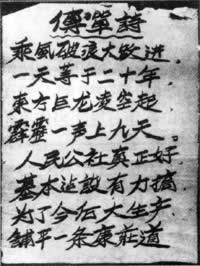 傳單詩
乘風破浪大跃进.
一天等于二十年.
東方巨龙凌空起
霹靂一声上九天。
人民公社真正好
基本建設有力搞.
为了今后大生产.
鋪平一条康莊道